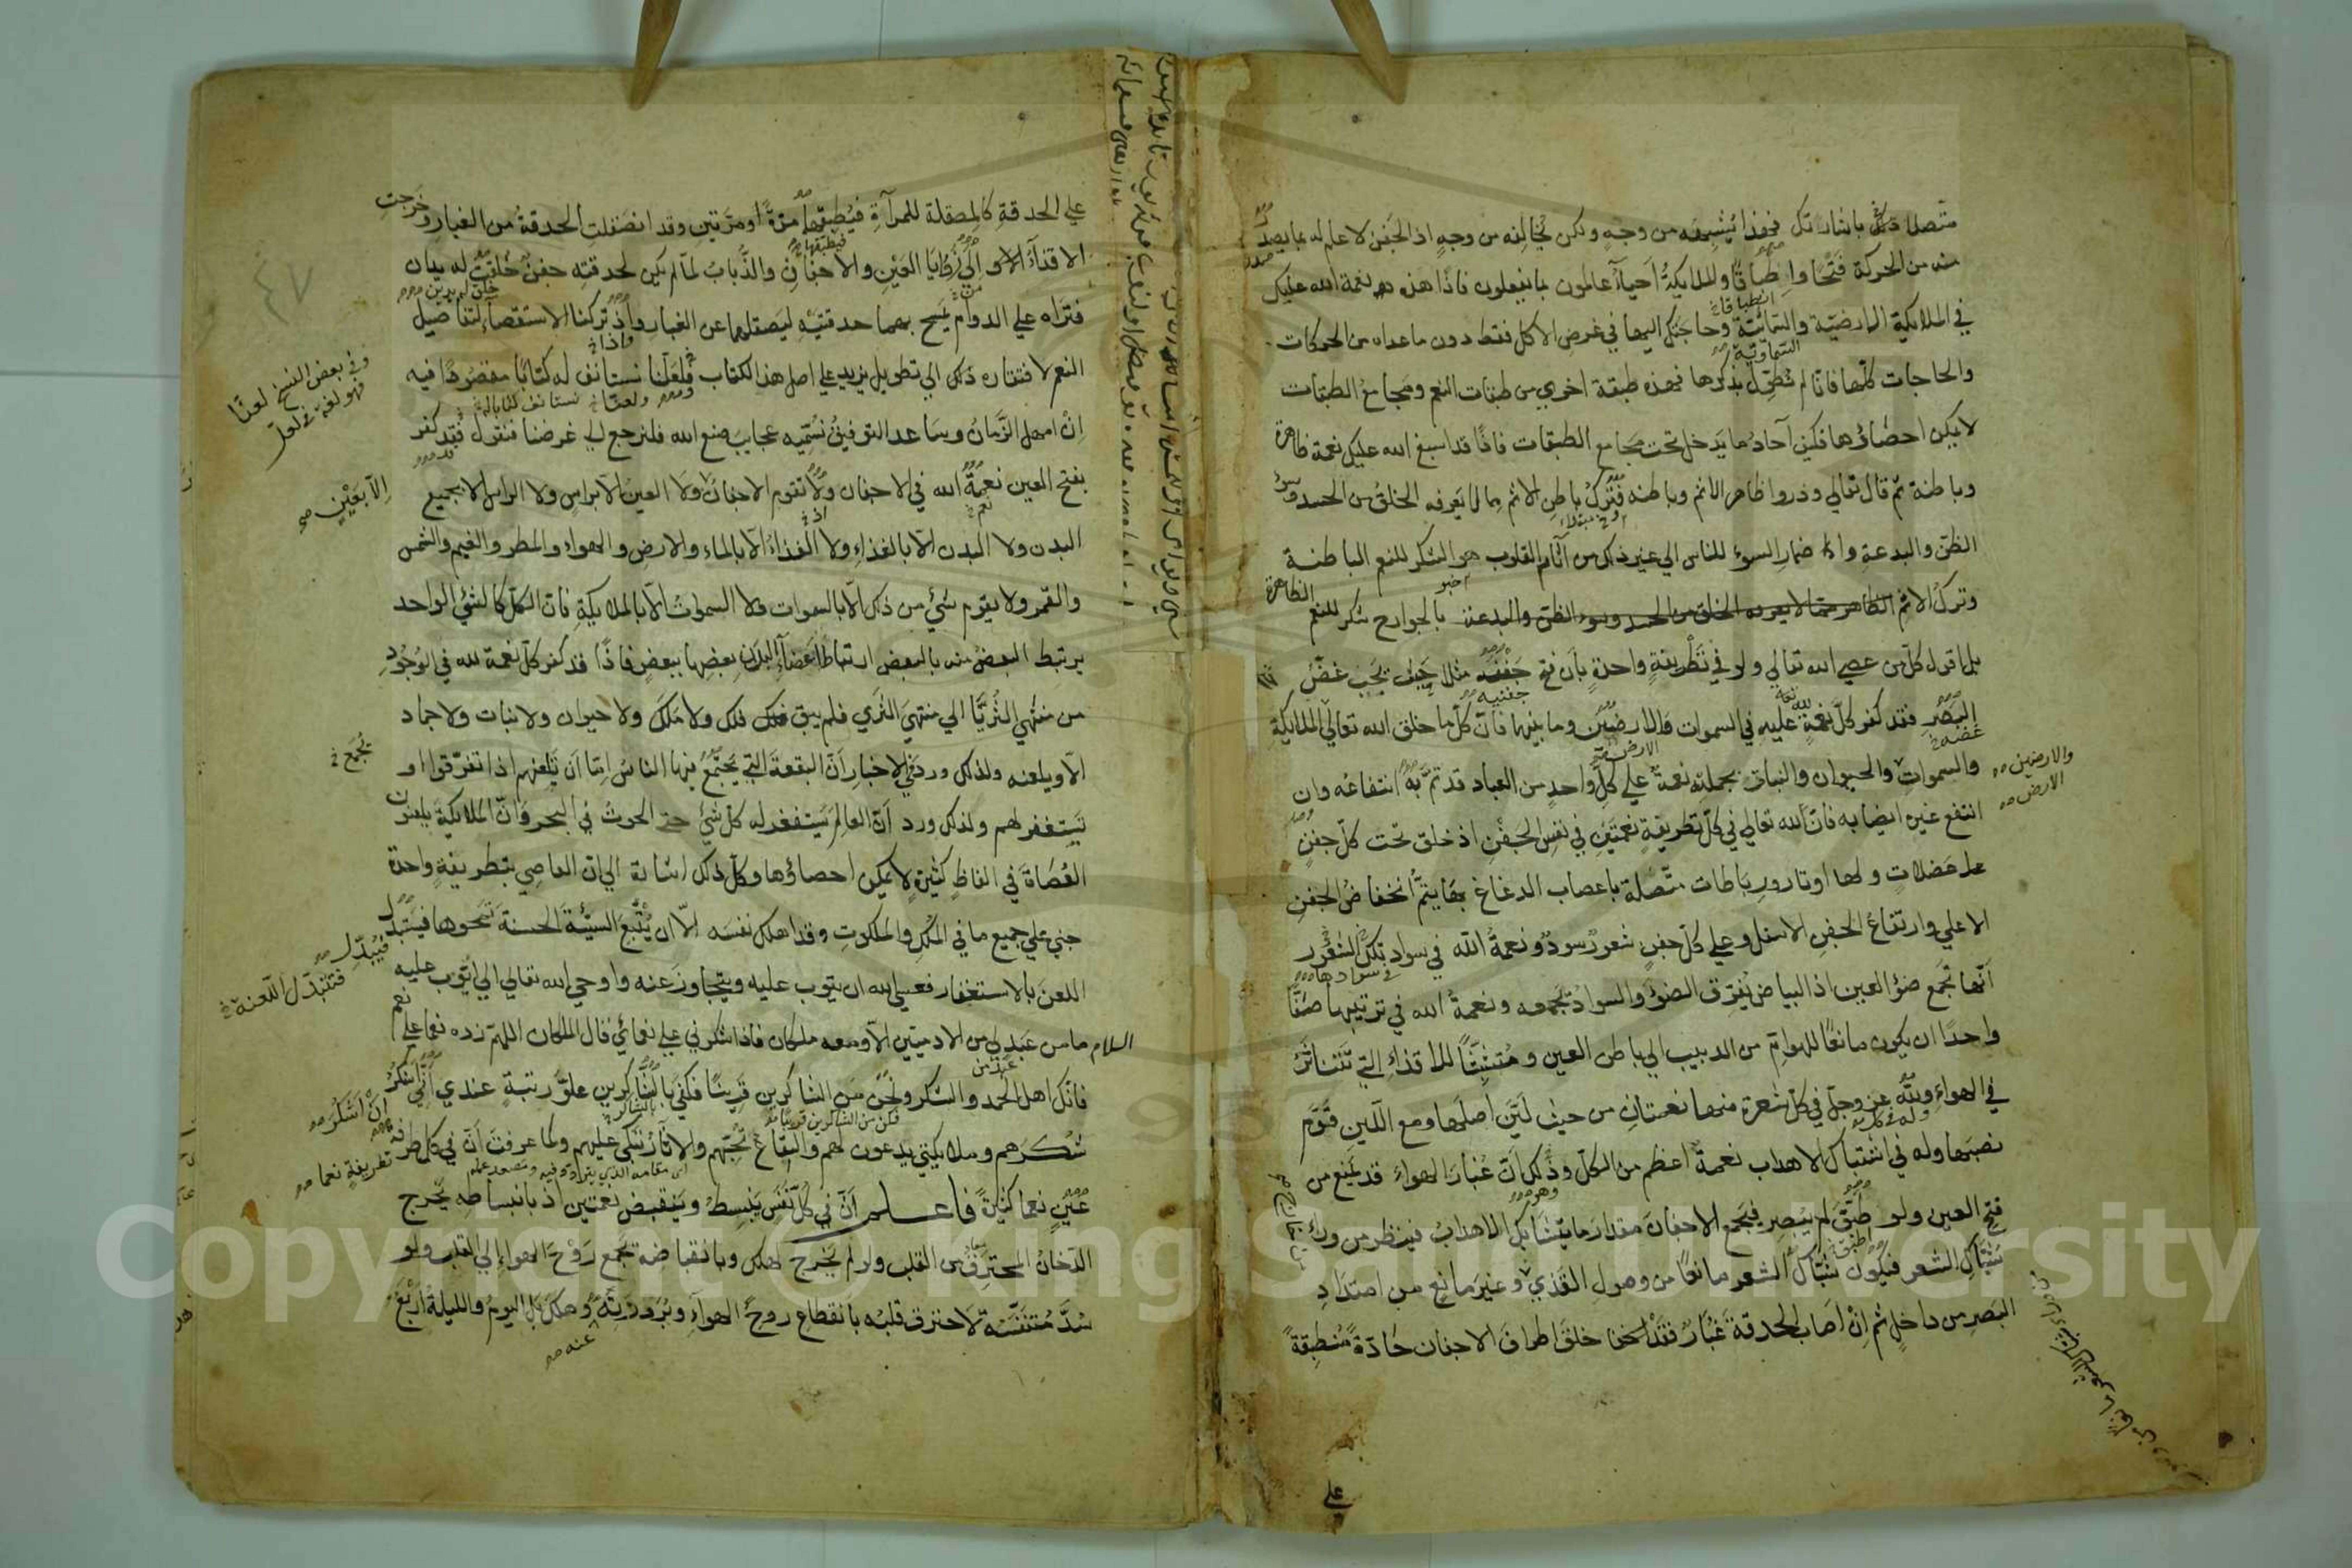 متصلا باشارتك فهذا يشبهه من وجه ولكن يخالفه من وجه اذ الجفن لا علم له بما يصدر
منه من الحركة فتحا واطباقا والملايكة احياء عالمون بما يفعلون فاذا هذه نعمة الله عليك
في الملايكة الارضية والسمائية وحاجتك اليها في غرض الاكل فقط دون ما عداه من الحركات
والحاجات كلها فانا لم نطول بذكرها فهذه طبقة اخري من طبقات النعم ومجامع الطبقات
لا يمكن احصاؤها فكيف آحاد ما يدخل تحت مجامع الطبقات فاذا قد اسبغ الله عليك نعمه ظاهرة
وباطنة ثم قال تعالي وذروا ظاهر الاثم وباطنه فترك باطن الاثم مما لا يعرفه الخلق من الحسد وسوء
الظن والبدعة واضمار السوء للناس الي غير ذلك من آثام القلوب هو الشكر للنعم الباطنة
وترك الاثم الظاهر بالجوارح شكر للنعم الظاهرة
بل اقول كل من عصي الله تعالي ولو في تطريفة واحدة بان فتح جفنه مثلا حيث يجب غض
البصر فقد كفر كل نعمة لله عليه في السموات والارضين وما بينهما فان كل ما خلق الله تعالي الملايكة
والسموات والحيوان والنبات بجملته نعمة علي كل واحد من العباد قد تم به انتفاعه وان
انتفع غيره ايضا به فان الله تعالي في كل تطريفة نعمتين في نفس الجفن اذ خلق تحت كل جفن
عضلات ولها اوتار ورباطات متصلة باعصاب الدماغ بها يتم انخفاض الجفن
الاعلي وارتفاع الجفن الاسفل وعلي كل جفن شعور سود ونعمة الله في سواد تلك الشعور
انها تجمع ضوء العين اذ البياض يفرق الضوء والسواد يجمعه ونعمة الله في ترتيبها صفا
واحدا ان يكون مانعا للهوام من الدبيب الي باطن العين ومتشبثا للاقذاء التي تتناثر
في الهواء ولله عز وجل في كل شعرة منها نعمتان من حيث لين اصلها ومع اللين قوم
نصبها وله في اشتباك الاهداب نعمة اعظم من الكل وذلك ان غبار الهواء قد يمنع من
فتح العين ولو طبق لم يبصر فيجمع الاجفان مقدار ما يتشابك الاهداب فينظر من وراء
شباك الشعر فيكون شباك الشعر مانعا من وصول القذي وغير مانع من امتداد
البصر من داخل ثم ان اصاب الحدقة غبار فقد خلق اطراف الاجفان حادة منطبقة
علي
والارضين
الارض
علي الحدقة كالمصقلة للمرآة فيطبقها مرة او مرتين وقد انصقلت الحدقة من الغبار وخرجت
الاقذاء الي زوايا العين والاجفان والذباب لما لم يكن لحدقته جفن خلقت له يدان
فتراه علي الدوام يمسح بهما حدقتيه ليصقلهما عن الغبار واذ تركنا الاستقصاء لتفاصيل
النعم لافتقاره ذلك الي تطويل يزيد علي اصل هذا الكتاب فلعلنا نستانف له كتابا مقصودا فيه
ان امهل الزمان وساعد التوفيق نسميه عجايب صنع الله فلنرجع الي غرضنا فنقول فقد كفر
بفتح العين نعمة الله في الاجفان ولا تقوم الاجفان ولا العين الا براس ولا الراس الا بجميع
البدن ولا البدن الا بالغذاء ولا الغذاء الا بالماء والارض والهواء والمطر والغيم والشمس
والقمر ولا يقوم شيء من ذلك الا بالسموات ولا السموات الا بالملايكة فان الكل كالشيء الواحد
يرتبط البعض منه بالبعض ارتباط اعضاء البدن بعضها ببعض فاذا قد كفر كل نعمة لله في الوجود
من منتهي الثريا الي منتهي الثري فلم يبق فلك ولا ملك ولا حيوان ولا نبات ولا جماد
الا ويلعنه ولذلك ورد في الاخبار ان البقعة التي يجتمع فيها الناس اما ان تلعنهم اذا تفرقوا او
تستغفر لهم ولذلك ورد ان العالم يستغفر له كل شيء حتي الحوت في البحر وان الملايكة يلعنون
العصاة في الفاظ كثيرة لا يمكن احصاؤها وكل ذلك اشارة الي ان العاصي بتطريفة واحدة
جني علي جميع ما في الملك والملكوت وقد اهلك نفسه الا ان يتبع السيئة الحسنة تمحوها فيتبدل
اللعن بالاستغفار فعسي الله ان يتوب عليه ويتجاوز عنه واوحي الله تعالي الي ايوب عليه
السلام ما من عبد لي من الادميين الا ومعه ملكان فاذا شكرني علي نعمائي قال الملكان اللهم زده نعما علي نعم
فانك اهل الحمد والشكر وكن من الشاكرين قريبا فكفي بالشاكرين علو رتبة عندي اني اشكر
شكرهم وملايكتي يدعون لهم والبقاع تحبهم والاثار تبكي عليهم وكما عرفت ان في كل طرفة
عين نعما كثيرة فاعلم ان في كل نفس ينبسط وينقبض نعمتين اذ بانبساطه يخرج
الدخان المحترق من القلب ولو لم يخرج لهلك وبانقباضه تجمع روح الهواء الي القلب ولو
سد متنفسه لاحترق قلبه بانقطاع روح الهواء وبرودته وهلك بل اليوم والليلة اربع
وفي بعض النسخ لعنا
فهو لغة في لعل
الا بعين صح
يجمع
فيبدل
فتتبدل اللعنة
ان اشكر
تطريفة نعما
عنه
٤٧
Copyright © King Saud University